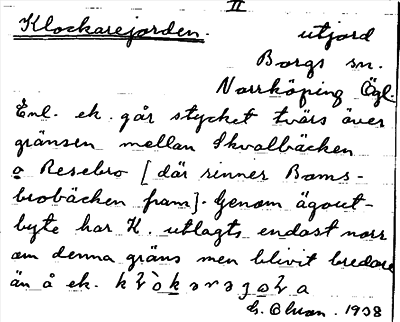 II
Klockarejorden. utjord
Borgs sn.
Norrköping Ögl.
Enl. ek. går stycket tvärs över
gränsen mellan Skvalbäcken
o Resebro [där rinner Boms-
brobäcken fram]. Genom ägout-
byte har K. utlagts endast norr
om denna gräns men blivit bredare
än å ek.
1938